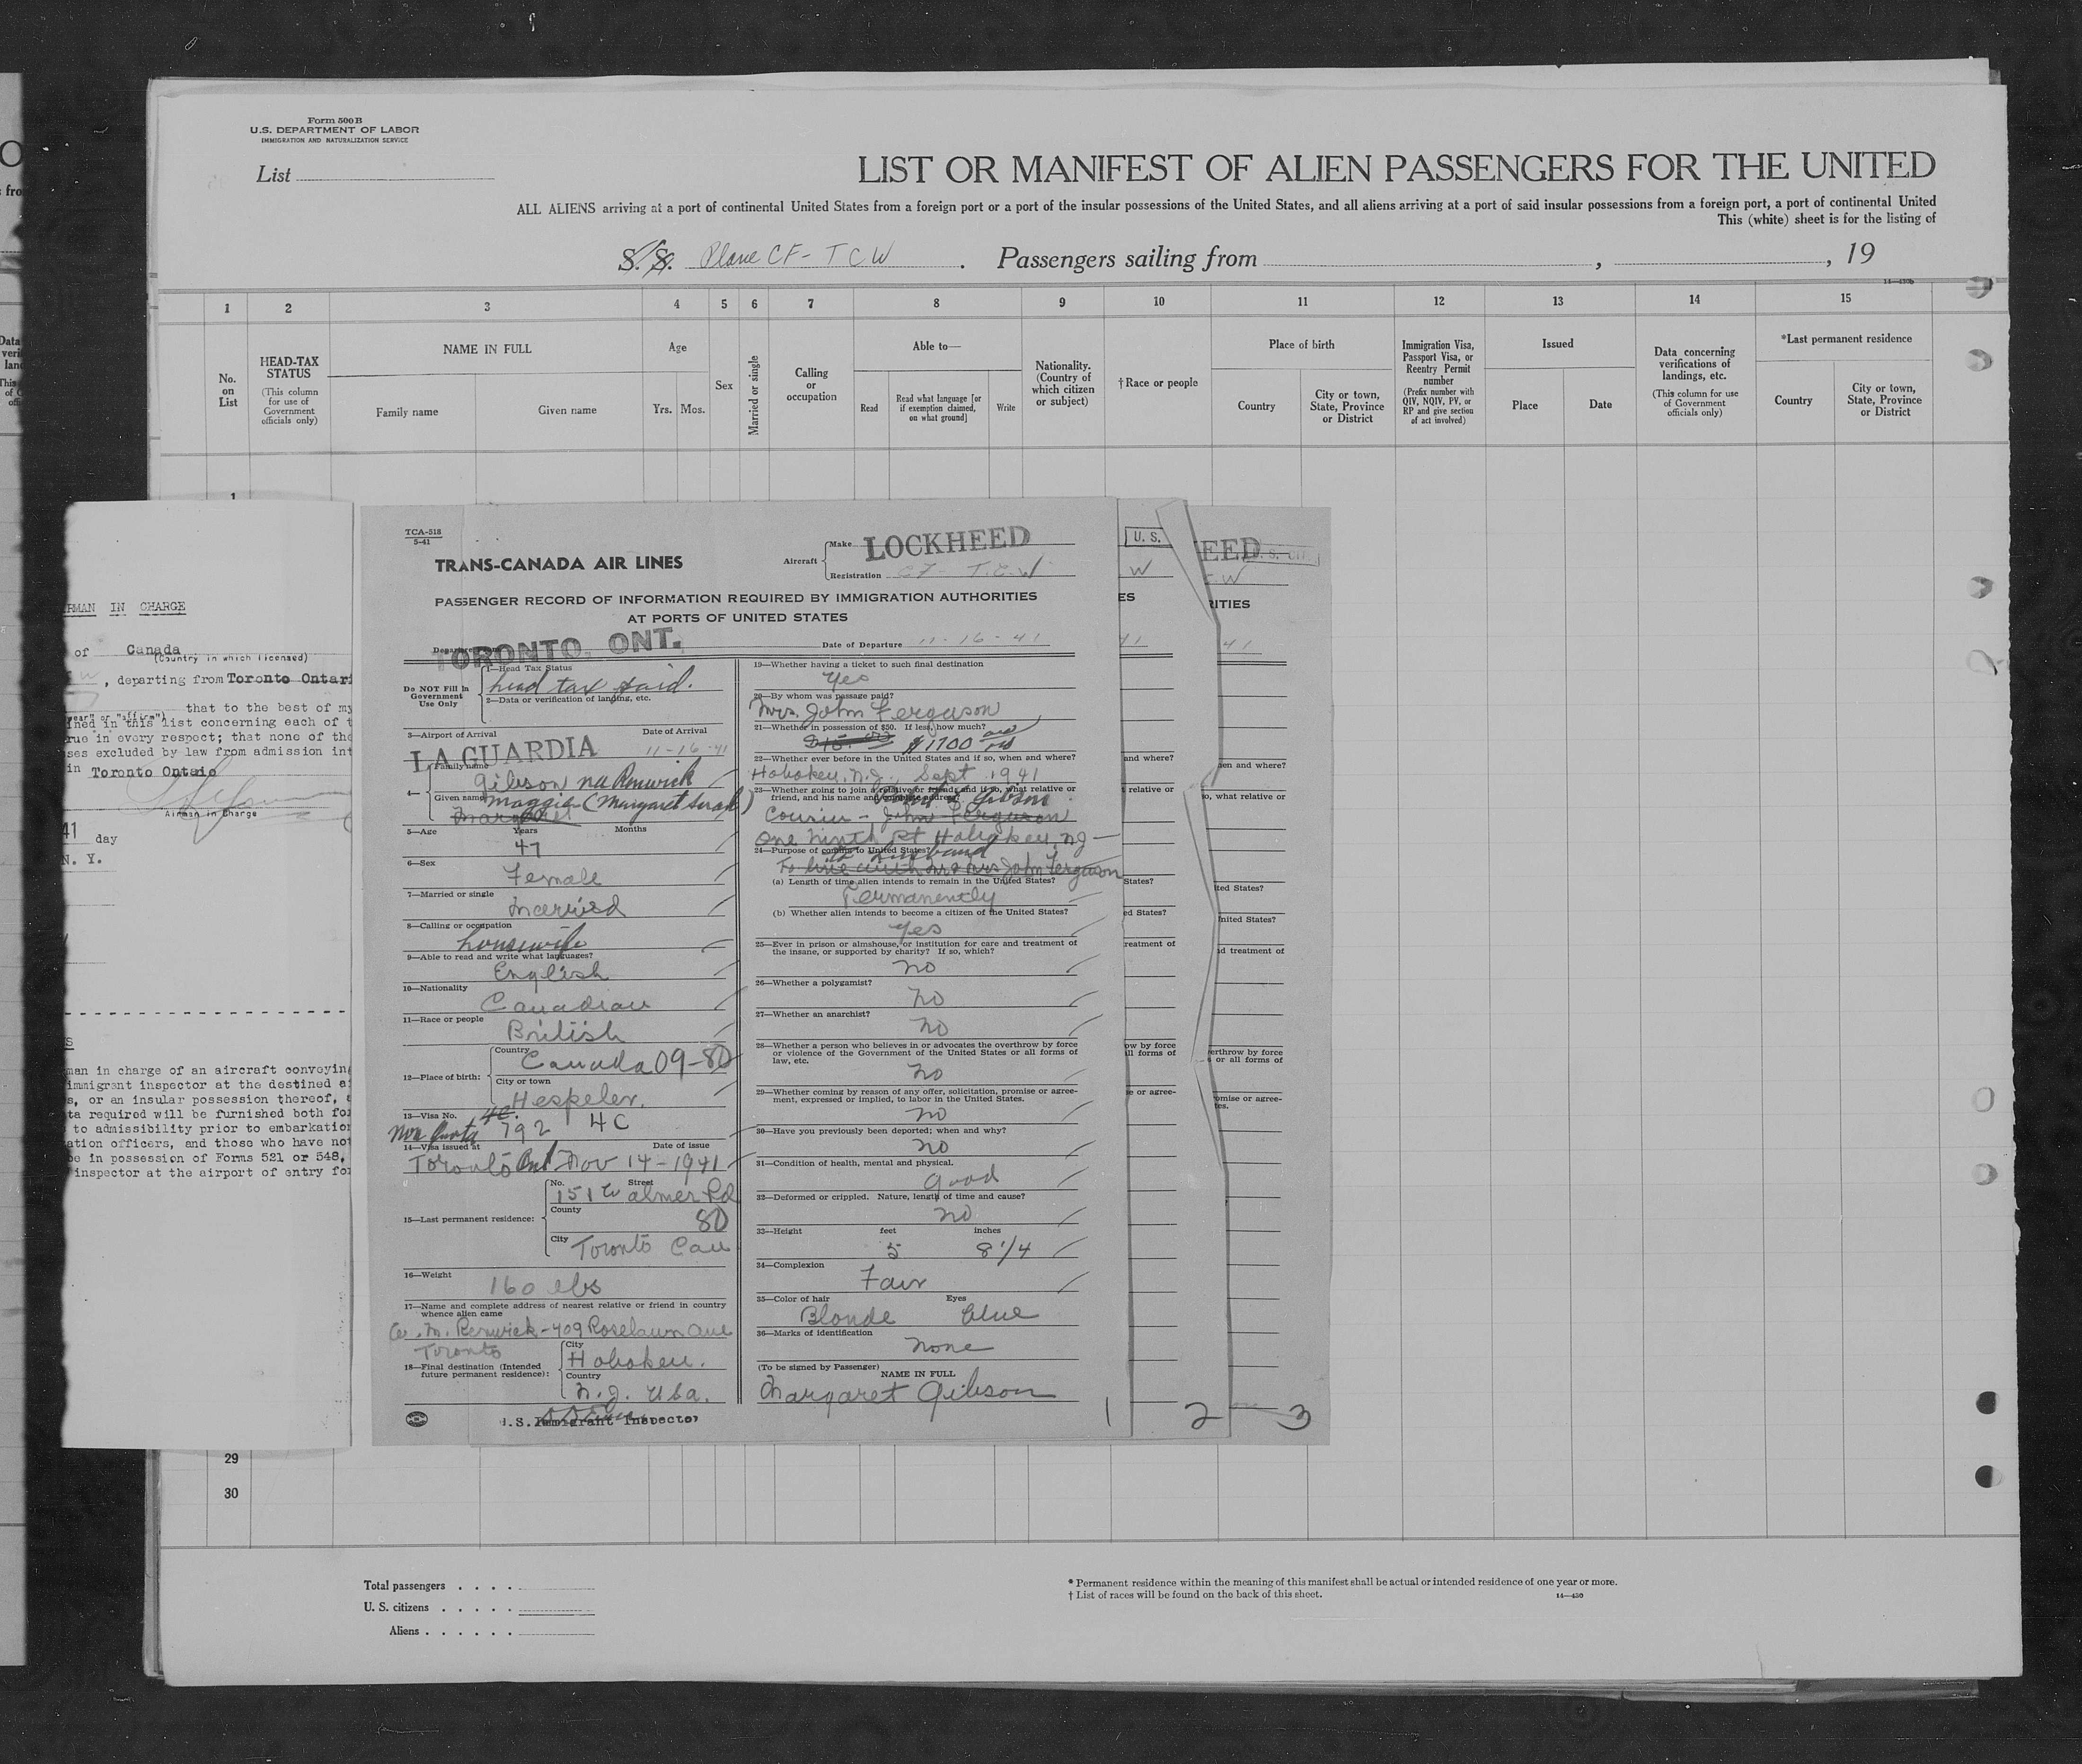 Form 500 B
U.S. DEPARTMENT OF LABOR
IMMIGRATION AND NATURALIZATION SERVICE
List
LIST OR MANIFEST OF ALIEN PASSENGERS FOR THE UNITED
ALL ALIENS arriving at a port of continental United States from a foreign port or a port of the insular possessions of the United States, and all aliens arriving at a port of said insular possessions from a foreign port, a port of continental United
This (white) sheet is for the listing of
S. S. Plane CF-TCW . Passengers sailing from , , 19
14-430b
1 2 3 4 5 6 7 8 9 10 11 12 13 14 15
No. on List
HEAD-TAX STATUS
(This column for use of Government officials only)
NAME IN FULL
Family name
Given name
Age
Yrs. Mos.
Sex
Married or single
Calling or occupation
Able to—
Read
Read what language [or if exemption claimed, on what ground]
Write
Nationality. (Country of which citizen or subject)
† Race or people
Place of birth
Country
City or town, State, Province or District
Immigration Visa, Passport Visa, or Reentry Permit number
(Prefix number with QIV, NQIV, PV, or RP and give section of act involved)
Issued
Place
Date
Data concerning verifications of landings, etc.
(This column for use of Government officials only)
*Last permanent residence
Country
City or town, State, Province or District
1
RMAN IN CHARGE
of Canada
(Country in which licensed)
, departing from Toronto Ontari
"swear" or "affirm") that to the best of my
ined in this list concerning each of t
rue in every respect; that none of the
ses excluded by law from admission int
in Toronto Ontaio
Airman in Charge
41 day
N. Y.
S
man in charge of an aircraft conveying
immigrant inspector at the destined a
s, or an insular possession thereof,
ta required will be furnished both for
to admissibility prior to embarkation
ation officers, and those who have not
be in possession of Forms 521 or 548,
inspector at the airport of entry for
TCA-518
5-41
TRANS-CANADA AIR LINES
Aircraft
Make LOCKHEED
Registration CF-T.C.W
PASSENGER RECORD OF INFORMATION REQUIRED BY IMMIGRATION AUTHORITIES
AT PORTS OF UNITED STATES
TORONTO, ONT.
Date of Departure 11-16-41
Do NOT Fill in Government Use Only
1—Head Tax Status
head tax paid.
2—Data or verification of landing, etc.
3—Airport of Arrival Date of Arrival
LA GUARDIA 11-16-41
4— Family name
Gibson nee Renwick
Given name Maggie (Margaret Sarah)
Margaret
5—Age Years Months
47
6—Sex
Female
7—Married or single
Married
8—Calling or occupation
housewife
9—Able to read and write what languages?
English
10—Nationality
Canadian
11—Race or people
British
12—Place of birth:
Country
Canada 09-80
City or town
Hespeler.
13—Visa No. 4C.
Non Quota 792 4C
14—Visa issued at Date of issue
Toronto Ont Nov 14-1941
15—Last permanent residence:
No. Street
151 Walmer Rd
County
80
City
Toronto Can
16—Weight
160 lbs
17—Name and complete address of nearest relative or friend in country whence alien came
W. M. Renwick-409 Roselawn Ave
Toronto
18—Final destination (Intended future permanent residence):
City
Hoboken.
Country
N.J. USA.
U.S. Immigrant Inspector
19—Whether having a ticket to such final destination
Yes
20—By whom was passage paid?
Mrs. John Ferguson
21—Whether in possession of $50. If less, how much?
$1700
22—Whether ever before in the United States and if so, when and where?
Hoboken, N.J., Sept 1941
23—Whether going to join a relative or friend; and if so, what relative or friend, and his name and complete address?
Gibson
Cousin - John Ferguson
One Ninth St Hoboken NJ-
24—Purpose of coming to United States?
husband
To live with Mr & Mrs John Ferguson
(a) Length of time alien intends to remain in the United States?
Permanently
(b) Whether alien intends to become a citizen of the United States?
Yes
25—Ever in prison or almshouse, or institution for care and treatment of the insane, or supported by charity? If so, which?
No
26—Whether a polygamist?
No
27—Whether an anarchist?
No
28—Whether a person who believes in or advocates the overthrow by force or violence of the Government of the United States or all forms of law, etc.
No
29—Whether coming by reason of any offer, solicitation, promise or agreement, expressed or implied, to labor in the United States.
No
30—Have you previously been deported; when and why?
No
31—Condition of health, mental and physical.
Good
32—Deformed or crippled. Nature, length of time and cause?
No
33—Height feet inches
5 8 1/4
34—Complexion
Fair
35—Color of hair Eyes
Blonde blue
36—Marks of identification
None
(To be signed by Passenger)
NAME IN FULL
Margaret Gibson
1 2 3
U. S.
W
ES
41
and where?
t relative or
States?
ed States?
reatment of
ow by force
ll forms of
e or agree-
EED
U. S. CIT
C W
RITIES
41
en and where?
o, what relative or
ited States?
United States?
nd treatment of
erthrow by force
s or all forms of
omise or agree-
tes.
29
30
Total passengers . . . .
U. S. citizens . . . . .
Aliens . . . . . .
* Permanent residence within the meaning of this manifest shall be actual or intended residence of one year or more.
† List of races will be found on the back of this sheet.
14-430